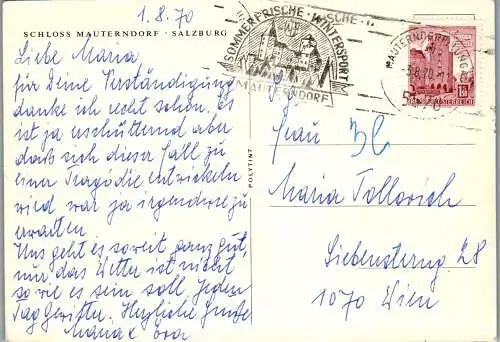 1.8.70
SCHLOSS MAUTERNDORF · SALZBURG
Liebe Maria
für Deine Verständigung
danke ich recht schön. Es
ist ja erschütternd aber
dass sich dieser Fall zu
einer Tragödie entwickeln
wird war ja irgendwie zu
erwarten.
Uns geht es soweit ganz gut,
nur das Wetter ist nicht
so wie es sein soll. Jeden
Tag Gewitter. Herzliche Grüße
POLYTINT
SOMMERFRISCHE · WINTERSPORT
MAUTERNDORF
MAUTERNDORF
REPUBLIK ÖSTERREICH
Frau
Maria Tollovich
Siebensterng 28
1070 Wien